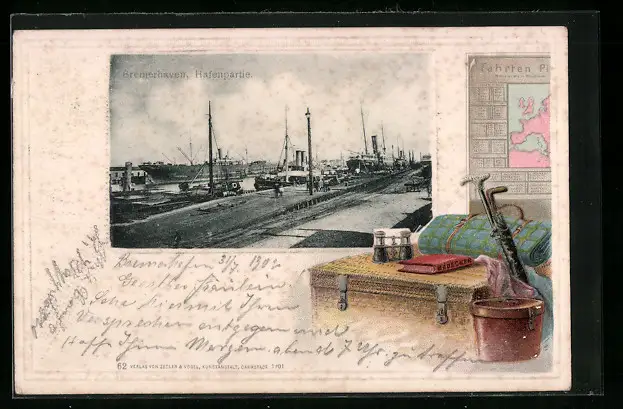 Bremerhaven, Hafenpartie.
Fahrten Pl
Bremerhafen 30/7 190
Geerthes Fräulein
Sehe hiermit Ihrem
Versprechen entgegen und
Hoffe Ihnen Morgen abend 7 Uhr zu treffen
62 VERLAG VON ZEDLER & VOGEL, KUNSTANSTALT, DARMSTADT. 1701